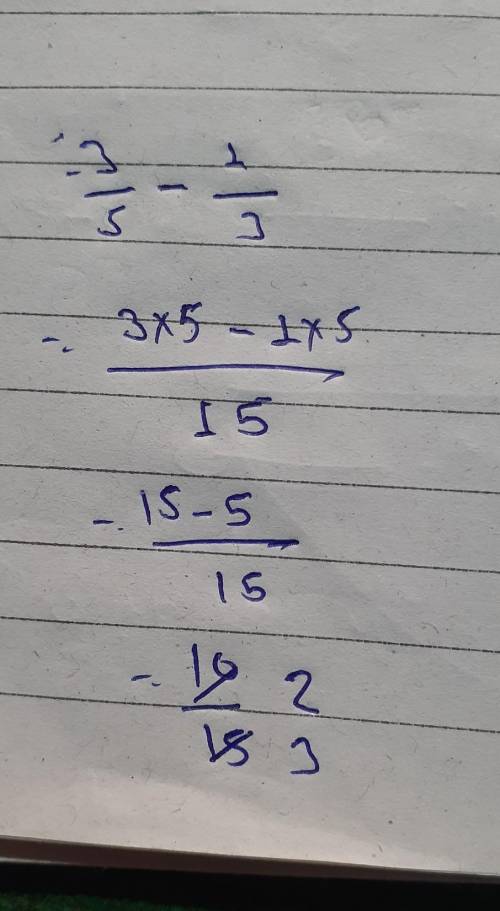 3/5 - 1/3
= 3×5 - 1×5 / 15
= 15 - 5 / 15
= 10/15 2/3